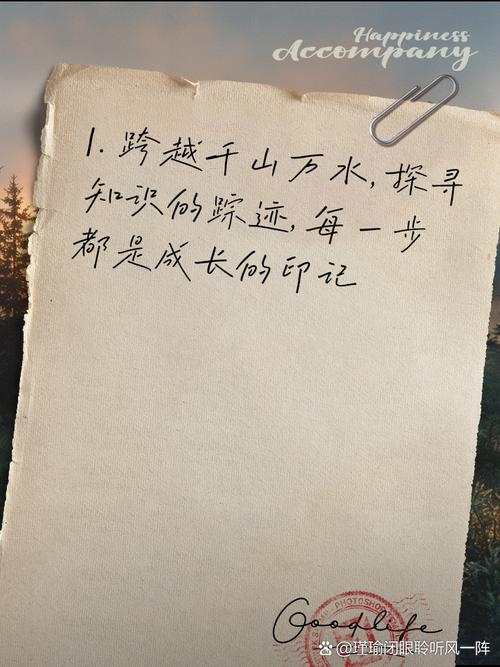 Happiness
Accompany
1. 跨越千山万水,探寻
知识的踪迹,每一步
都是成长的印记
Goodlife
PHOTOSHOP
@瑾瑜闭眼聆听风一阵